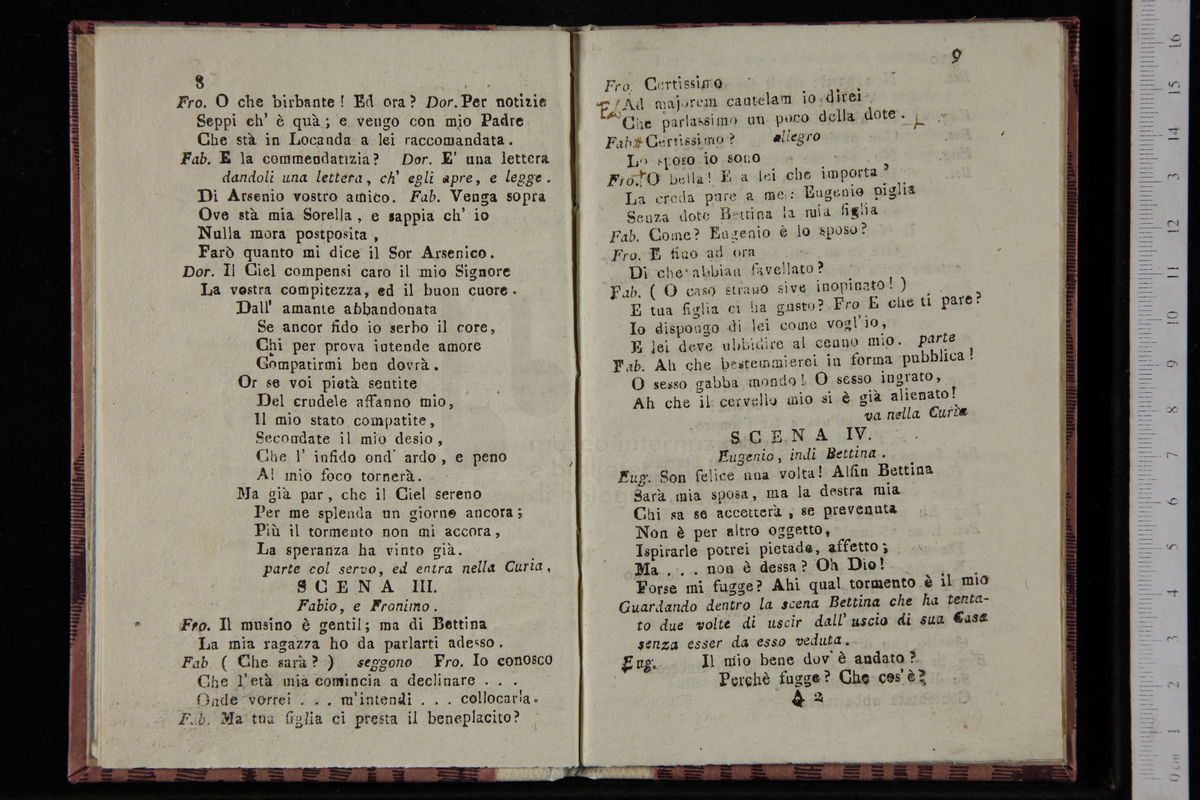 8
Fro. O che birbante! Ed ora? Dor. Per notizie
Seppi ch' è quà; e vengo con mio Padre
Che stà in Locanda a lei raccomandata.
Fab. E la commendatizia? Dor. E' una lettera
dandoli una lettera, ch' egli apre, e legge.
Di Arsenio vostro amico. Fab. Venga sopra
Ove stà mia Sorella, e sappia ch' io
Nulla mora postposita,
Farò quanto mi dice il Sor Arsenico.
Dor. Il Ciel compensi caro il mio Signore
La vostra compitezza, ed il buon cuore.
Dall' amante abbandonata
Se ancor fido io serbo il core,
Chi per prova intende amore
Compatirmi ben dovrà.
Or se voi pietà sentite
Del crudele affanno mio,
Il mio stato compatite,
Secondate il mio desio,
Che l' infido ond' ardo, e peno
Al mio foco tornerà.
Ma già par, che il Ciel sereno
Per me splenda un giorno ancora;
Più il tormento non mi accora,
La speranza ha vinto già.
parte col servo, ed entra nella Curia,
SCENA III.
Fabio, e Fronimo.
Fro. Il musino è gentil; ma di Bettina
La mia ragazza ho da parlarti adesso.
Fab ( Che sarà? ) seggono Fro. Io conosco
Che l'età mia comincia a declinare . . .
Onde vorrei . . . m'intendi . . . collocarla.
Fab. Ma tua figlia ci presta il beneplacito?
9
Fro. Certissimo
Ad majorem cautelam io direi
Che parlassimo un poco della dote.
Fab. Certissimo? allegro
Lo sposo io sono
Fro. O bella! E a lei che importa?
La creda pure a me: Eugenio piglia
Senza dote Bettina la mia figlia
Fab. Come? Eugenio è lo sposo?
Fro. E fino ad ora
Di che abbiam favellato?
Fab. ( O caso strano sive inopinato! )
E tua figlia ci ha gusto? Fro E che ti pare?
Io dispongo di lei come vogl'io,
E lei deve ubbidire al cenno mio. parte
Fab. Ah che bestemmierei in forma pubblica!
O sesso gabba mondo! O sesso ingrato,
Ah che il cervello mio si è già alienato!
va nella Curia
SCENA IV.
Eugenio, indi Bettina.
Eug. Son felice una volta! Alfin Bettina
Sarà mia sposa, ma la destra mia
Chi sa se accetterà, se prevenuta
Non è per altro oggetto,
Ispirarle potrei pietade, affetto;
Ma . . . non è dessa? Oh Dio!
Forse mi fugge? Ahi qual tormento è il mio
Guardando dentro la scena Bettina che ha tenta-
to due volte di uscir dall' uscio di sua Casa
senza esser da esso veduta.
Eug. Il mio bene dov' è andato?
Perchè fugge? Che cos'è?
A 2